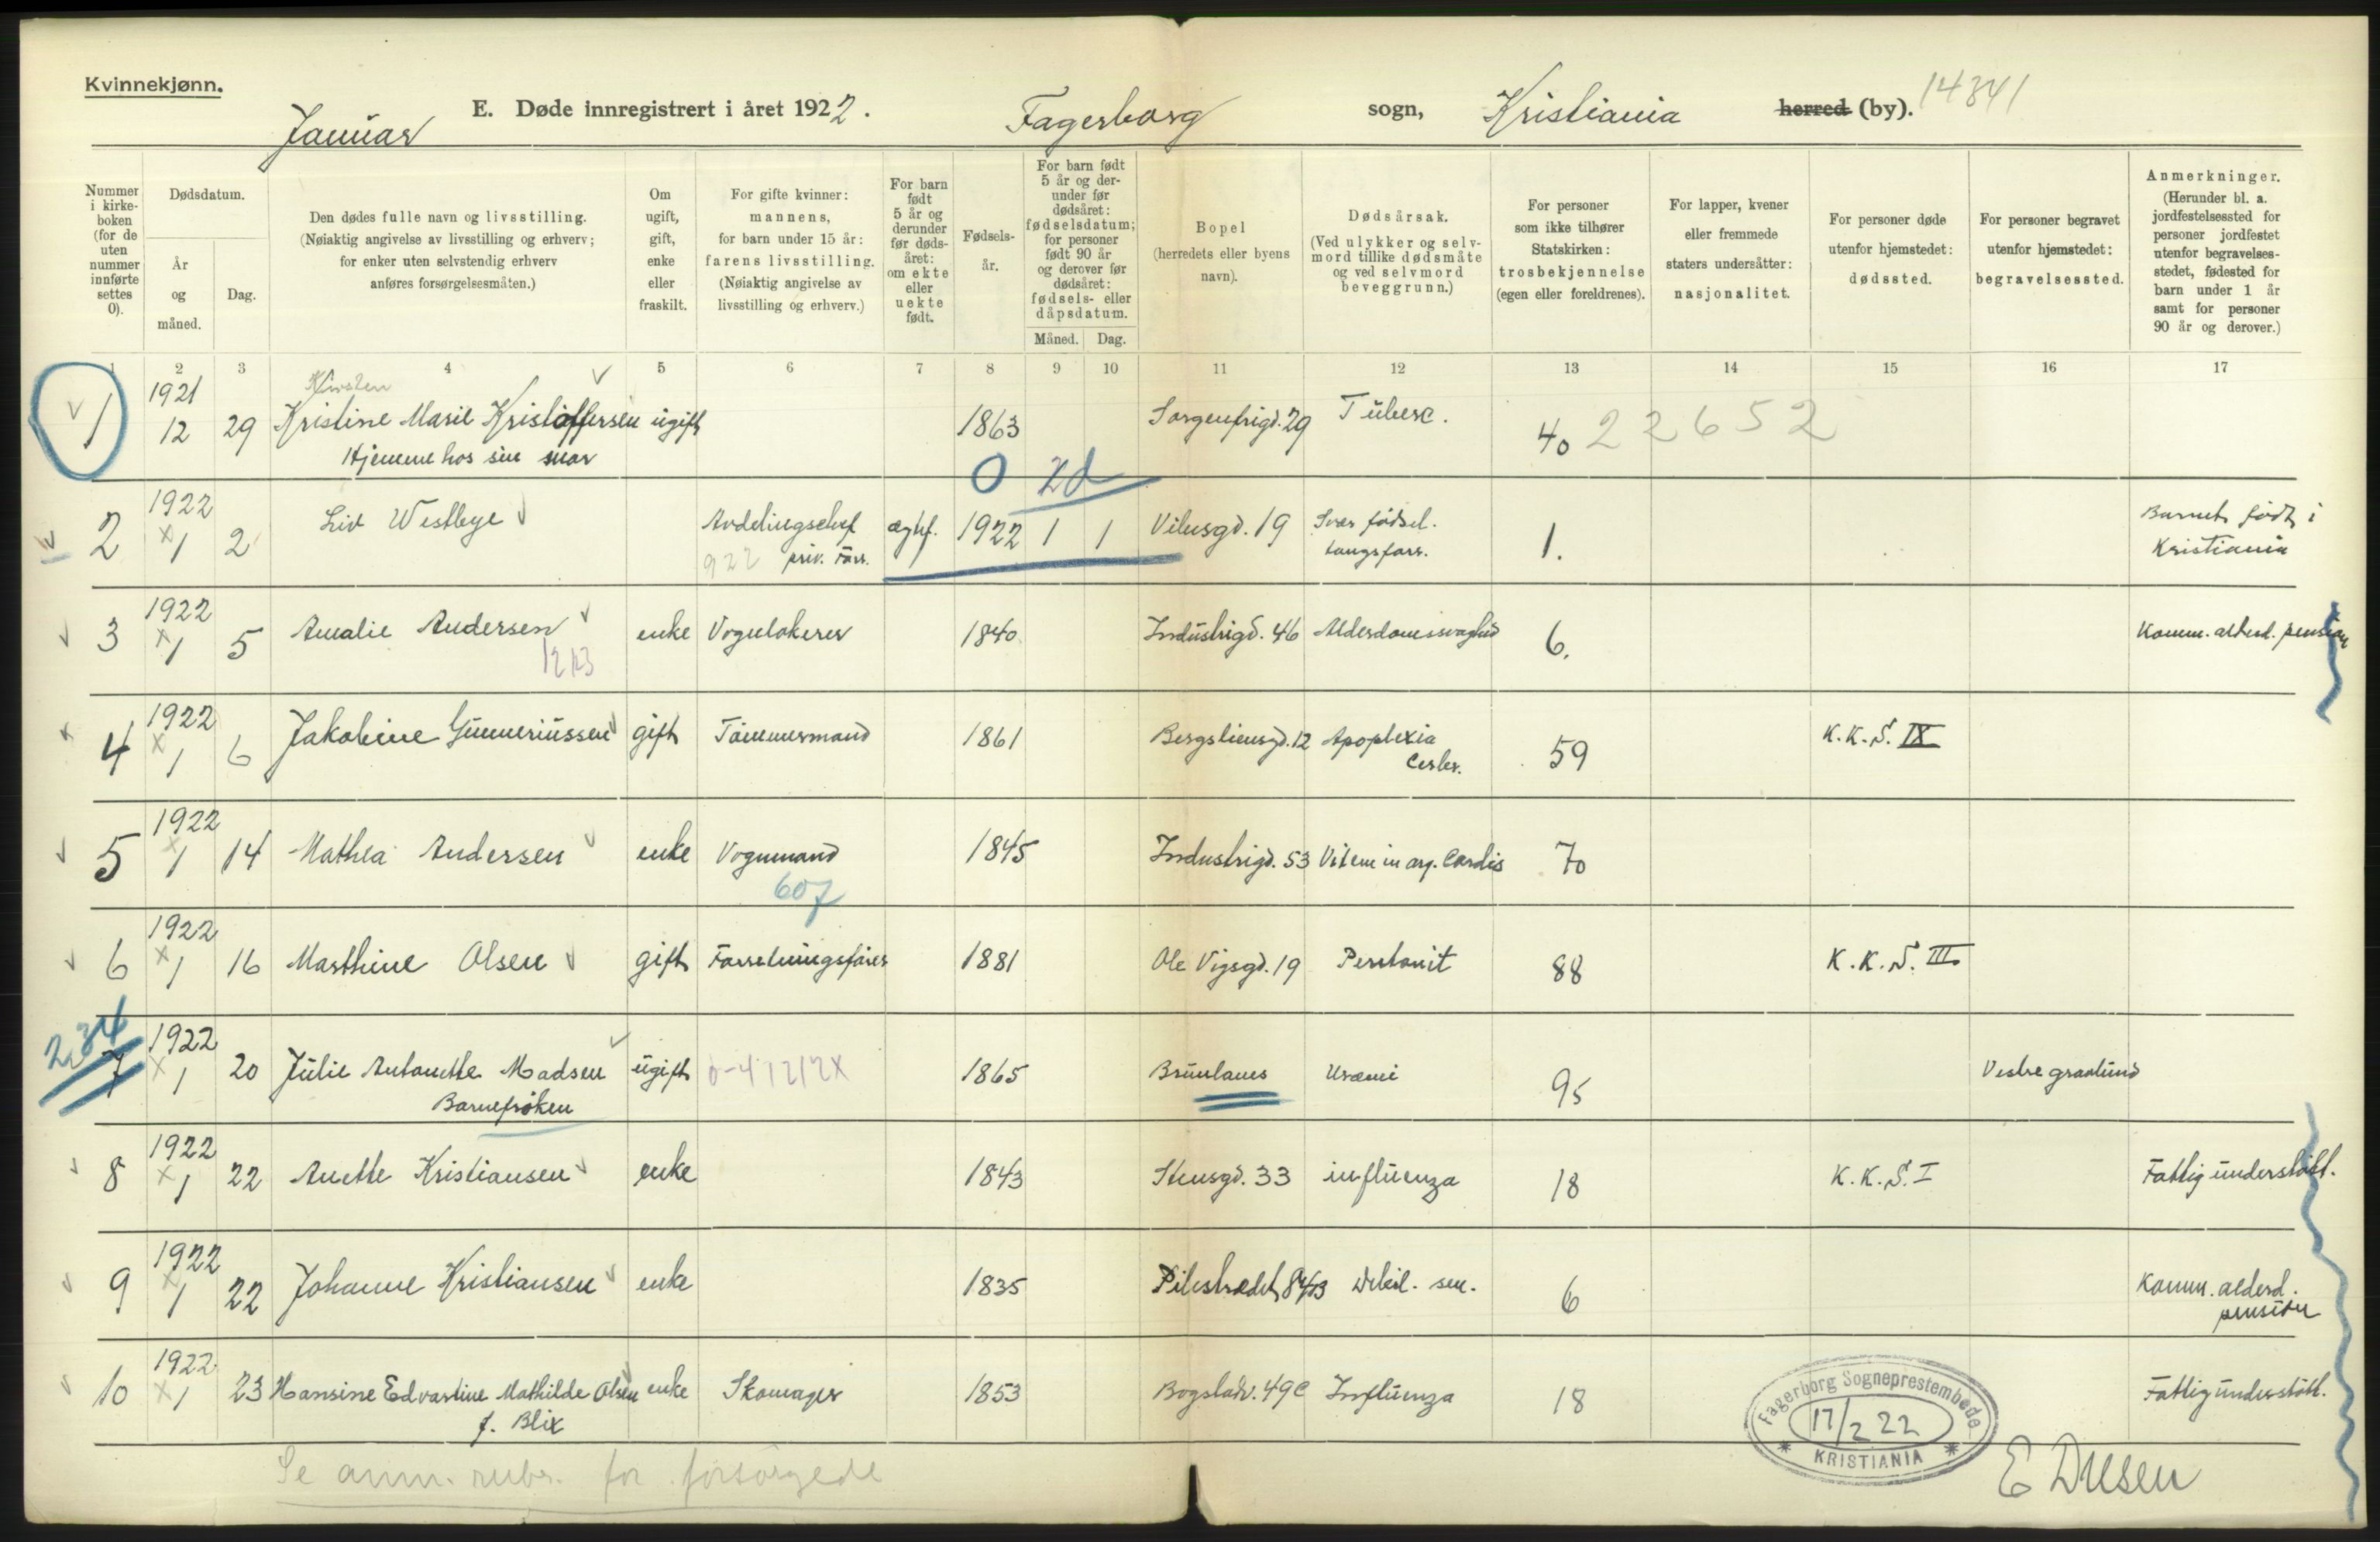 Kvinnekjønn.
Januar E. Døde innregistrert i året 1922. Fagerborg sogn, Kristiania herred (by). 14841
Nummer i kirkeboken (for de uten nummer innførte settes 0).
Dødsdatum.
År og måned.
Dag.
Den dødes fulle navn og livsstilling.
(Nøiaktig angivelse av livsstilling og erhverv;
for enker uten selvstendig erhverv
anføres forsørgelsesmåten.)
Om ugift, gift, enke eller fraskilt.
For gifte kvinner:
mannens,
for barn under 15 år:
farens livsstilling.
(Nøiaktig angivelse av
livsstilling og erhverv.)
For barn født 5 år og derunder før dødsåret: om ekte eller uekte født.
Fødselsår.
For barn født 5 år og derunder før dødsåret: fødselsdatum; for personer født 90 år og derover før dødsåret: fødsels- eller dåpsdatum.
Måned. Dag.
Bopel
(herredets eller byens
navn).
Dødsårsak.
(Ved ulykker og selvmord tillike dødsmåte og ved selvmord beveggrunn.)
For personer
som ikke tilhører
Statskirken:
trosbekjennelse
(egen eller foreldrenes).
For lapper, kvener
eller fremmede
staters undersåtter:
nasjonalitet.
For personer døde
utenfor hjemstedet:
dødssted.
For personer begravet
utenfor hjemstedet:
begravelsessted.
Anmerkninger.
(Herunder bl. a. jordfestelsessted for personer jordfestet utenfor begravelsesstedet, fødested for barn under 1 år samt for personer 90 år og derover.)
1 2 3 4 5 6 7 8 9 10 11 12 13 14 15 16 17
Kirsten
1 1921 12 29 Kristine Marie Kristoffersen ugift 1863 Sorgenfrigd. 29 Tuberc. 40 22652
Hjemme hos sin mor
0 2d
2 1922 1 2 Liv Westbye Avdelingschef ægtef. 1922 1 1 Vibesgd. 19 Svær fødsel. 1. Barnet født i
922 priv. Forr. tangsforr. Kristiania
3 1922 1 5 Amalie Andersen enke Vognlakerer 1840 Industrigd. 46 Alderdomssvaghed 6. Komm. alderd. pension
1213
4 1922 1 6 Jakobine Gunneriussen gift Tømmermand 1861 Bergsliensgd. 12 Apoplexia 59 K.K.S. IX
Cerebr.
5 1922 1 14 Mathea Andersen enke Vognmand 1845 Industrigd. 53 Vitium org. Cordis 70
607
6 1922 1 16 Marthine Olsen gift Forretningsfører 1881 Ole Vigsgd. 19 Peritonit 88 K.K.S. III
234
7 1922 1 20 Julie Antonette Madsen ugift 0-41212X 1865 Brunlanes Uræmi 95 Vestre gravlund
Barnefrøken
8 1922 1 22 Anette Kristiansen enke 1843 Stensgd. 33 influenza 18 K.K.S. I Fattigunderstøtt.
9 1922 1 22 Johanne Kristiansen enke 1835 Pilestrædet Debil. sen. 6 Komm. alderd.
pension
10 1922 1 23 Hansine Edvardine Mathilde Olsen enke Skomager 1853 Bogstadv. 49c Influenza 18 Fattigunderstøtt.
f. Blix
Fagerborg Sogneprestembede
17/2 22
KRISTIANIA
Se anm. rubr. for forsørgede